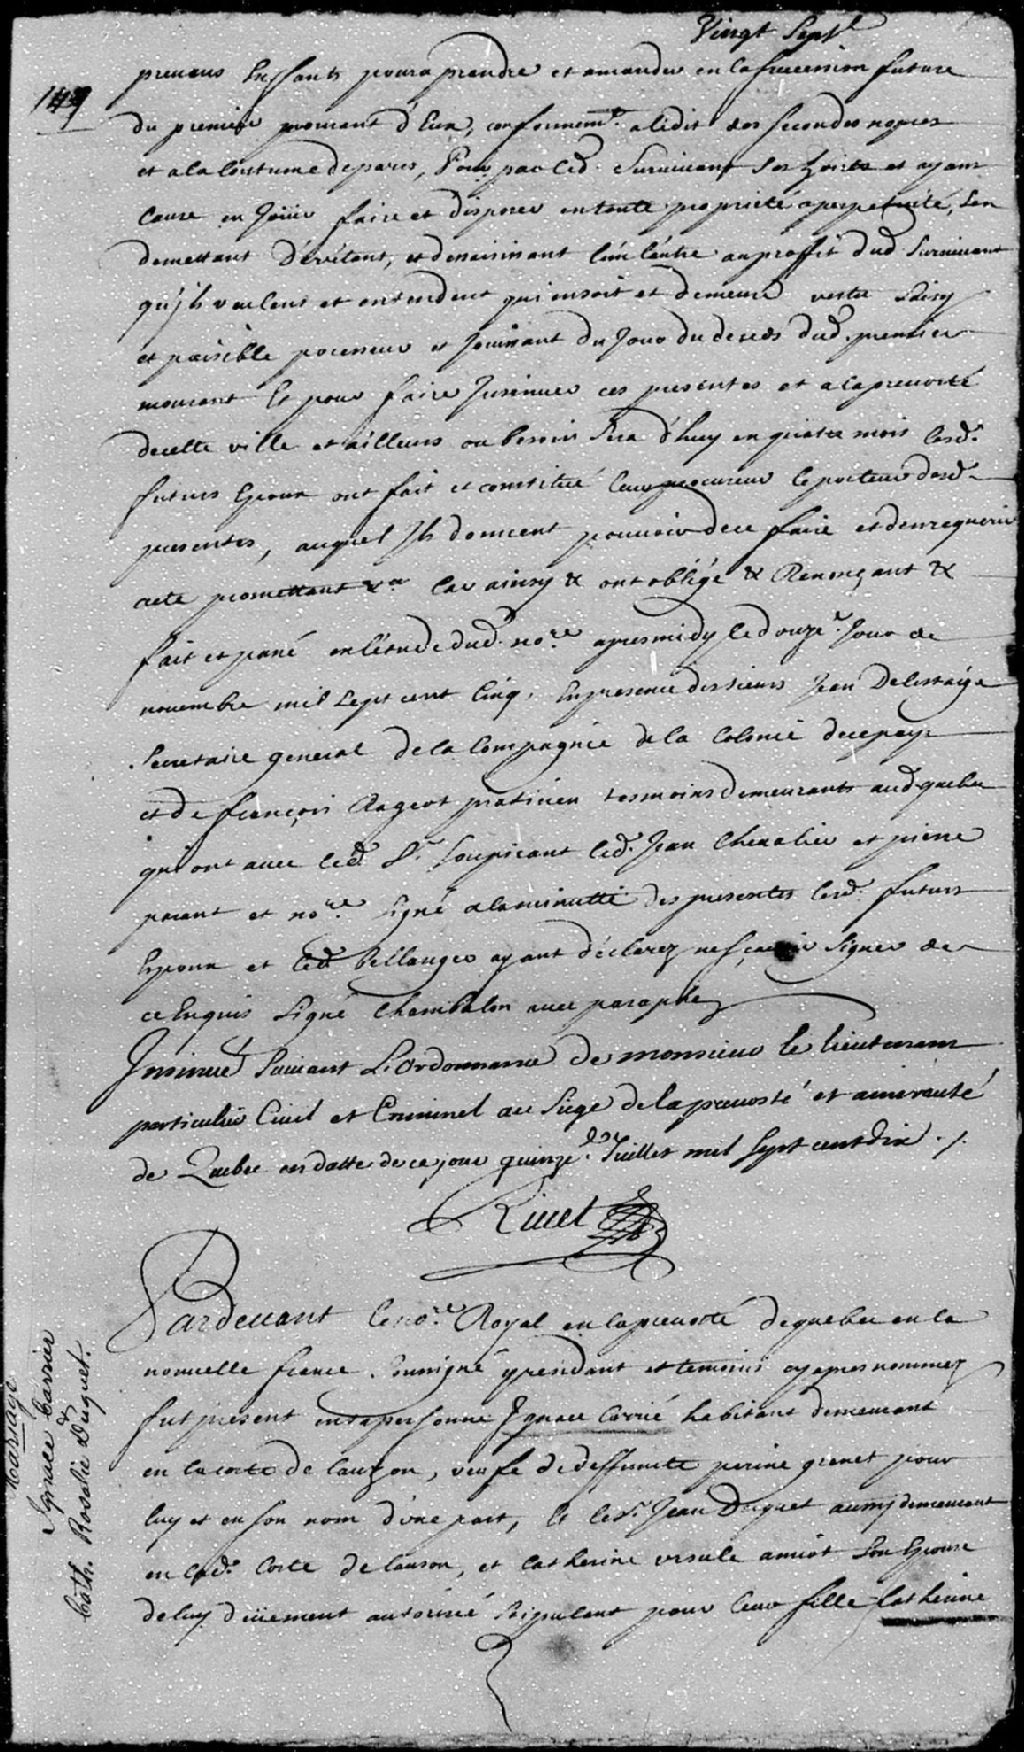 Vingt Sept
149
prenans Enffants poura prendre et amander en la sucession future
du premier mourant d'Eux, conformemt. a lédit des secondes nopces
et a la Coutume de paris, Pour par led. Survivant ses hoirs et ayans
Cause en Joüir faire et disposer en toute propriété a perpetuité, s'en
demettant dévétant, et dessaisissant l'un l'autre au proffit dud survivant
qu'Jls veulent et entendent qui en soit et demeure vestu saisy
et paisible possesseur et Jouissant du Jour du deceds dud. premier
mourant Et pour faire Jnsinuer ces presentes et a la prevosté
de cette ville et ailleurs ou besoin sera d'huy en quatre mois lesd.
futurs Epoux ont fait et constitué leur procureur le porteur desd.
presentes, auquel Jls donnent pouvoir de ce faire et den requerir
acte promettant &a Car ainsy & ont obligé & Renonçant &
fait et passé en létude dud. nore. apres midy le douze. Jour de
novembre mil sept cent Cinq, En presence des sieurs Jean Delestaige
Secretaire general de la Compagnie de la Colonie de ce pays
et de françois Rageot praticien tesmoins demeurants aud quebec
qui ont avec led. Sr. led. Jean Chevalier et pierre
parent et nore. signé a la minutte des presentes lesd. futurs
Epoux et led. Bellanger ayant déclarez ne sçavoir signer de
ce Enquis Signé Chambalon avec paraphe
Jnsinué Suivant L'Ordonnance de monsieur le lieutenant
particulier Civil et Criminel au Siege de la prevosté et amirauté
de Quebec en datte de ce jour quinze. Juillet mil sept cent dix ./.
Rivet
Mariage
Ignace Carrier
&
Cath. Rosalie Duquet.
Pardevant le nore. Royal en la prevosté de quebec en la
nouvelle france. soussigné y residant et temoins cy apres nommez
fut present en sa personne Jgnace Carrié habitant demeurant
en la coste de Lauzon, veufe de deffuncte perine grenet pour
luy et en son nom d'une part, et le Sr. Jean Duquet aussy demeurant
en lad. Coste de Lauson, et Catherine ursule amiot son Epouse
de luy düement autorisée stipulant pour leur fille Catherine